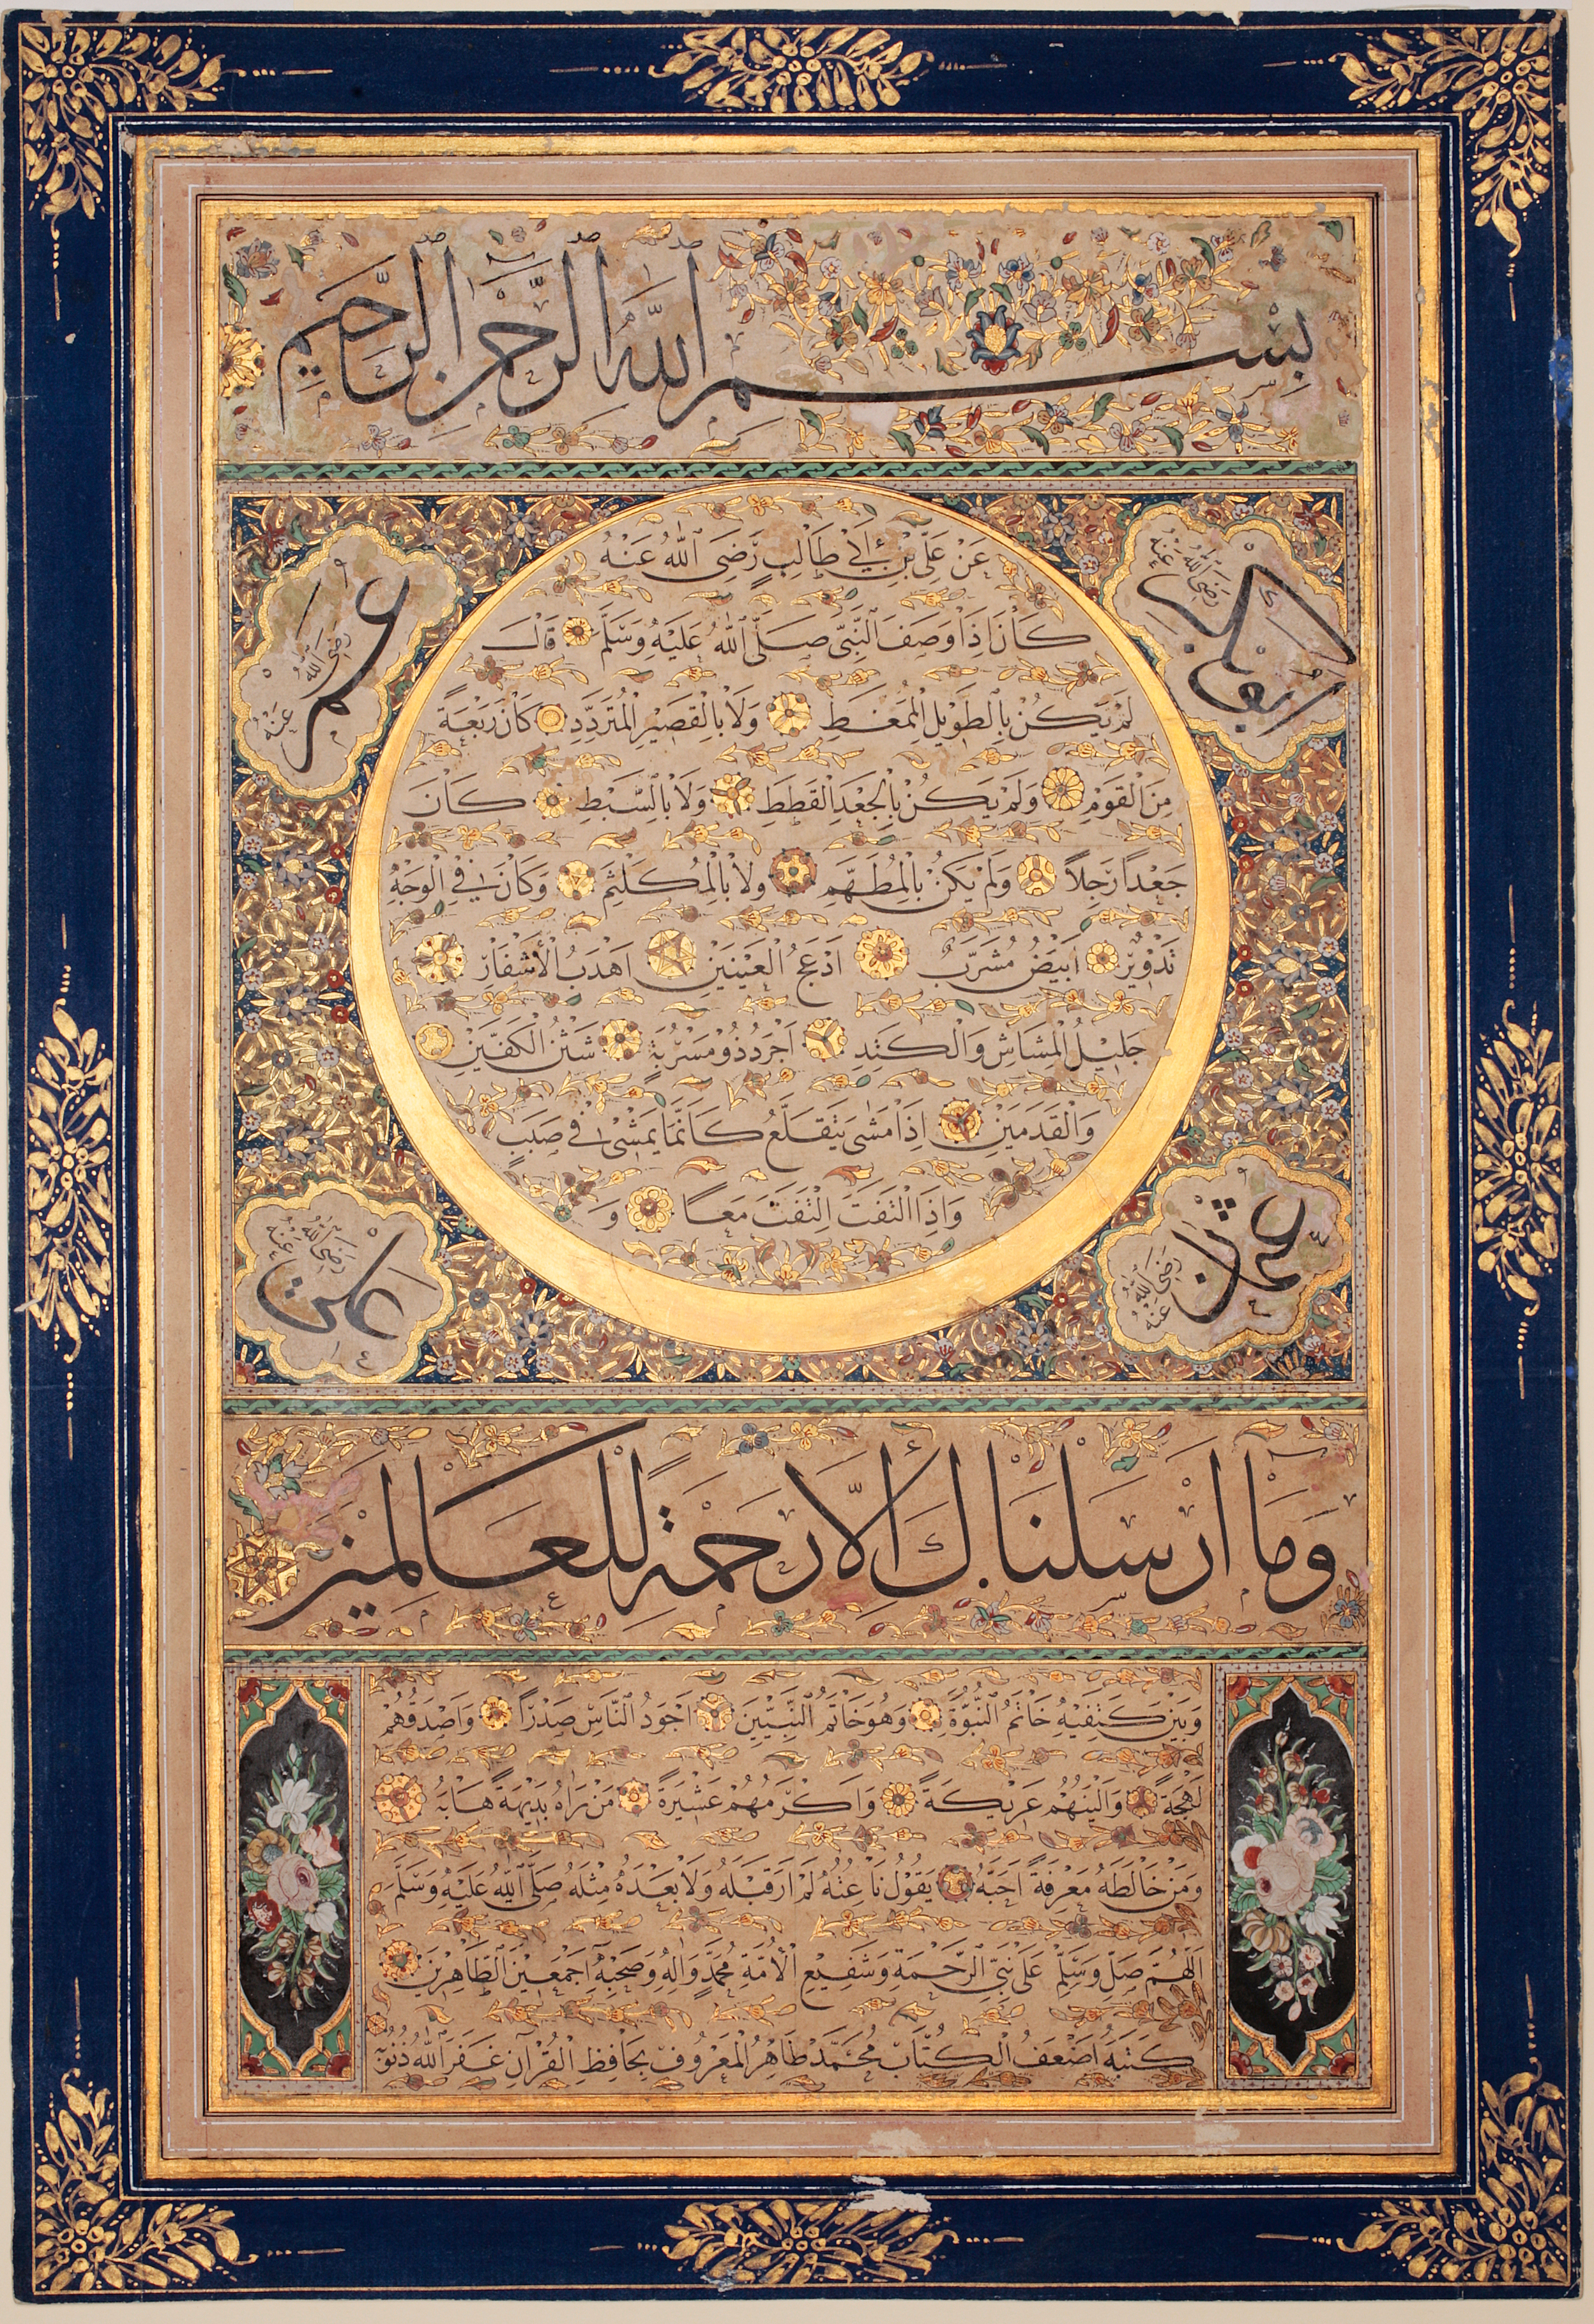 بِسْمِ اللّٰهِ الرَّحْمٰنِ الرَّحِيمِ
ابو بكر رضى الله عنه
عمر رضى الله عنه
عَنْ عَلِىِّ بْنِ اَبِى طَالِبٍ رَضِىَ اللّٰهُ عَنْهُ
كَانَ اِذَا وَصَفَ النَّبِىَّ صَلَّى اللّٰهُ عَلَيْهِ وَسَلَّمَ قَالَ
لَمْ يَكُنْ بِالطَّوِيلِ الْمُمَغَّطِ وَلَا بِالْقَصِيرِ الْمُتَرَدِّدِ كَانَ رَبْعَةً
مِنَ الْقَوْمِ وَلَمْ يَكُنْ بِالْجَعْدِ الْقَطَطِ وَلَا بِالسَّبْطِ كَانَ
جَعْدًا رَجِلًا وَلَمْ يَكُنْ بِالْمُطَهَّمِ وَلَا بِالْمُكَلْثَمِ وَكَانَ فِى الْوَجْهِ
تَدْوِيرٌ اَبْيَضُ مُشْرَبٌ اَدْعَجُ الْعَيْنَيْنِ اَهْدَبُ الْاَشْفَارِ
جَلِيلُ الْمُشَاشِ وَالْكَتَدِ اَجْرَدُ ذُو مَسْرُبَةٍ شَثْنُ الْكَفَّيْنِ
وَالْقَدَمَيْنِ اِذَا مَشٰى يَتَقَلَّعُ كَاَنَّمَا يَمْشِى فِى صَبَبٍ
وَاِذَا الْتَفَتَ الْتَفَتَ مَعًا وَ
عثمان رضى الله عنه
على رضى الله عنه
وَمَا اَرْسَلْنَاكَ اِلَّا رَحْمَةً لِلْعَالَمِينَ
وَبَيْنَ كَتِفَيْهِ خَاتَمُ النُّبُوَّةِ وَهُوَ خَاتَمُ النَّبِيِّينَ اَجْوَدُ النَّاسِ صَدْرًا وَاَصْدَقُهُمْ
لَهْجَةً وَاَلْيَنُهُمْ عَرِيكَةً وَاَكْرَمُهُمْ عَشِيرَةً مَنْ رَاٰهُ بَدِيهَةً هَابَهُ
وَمَنْ خَالَطَهُ مَعْرِفَةً اَحَبَّهُ يَقُولُ نَاعِتُهُ لَمْ اَرَ قَبْلَهُ وَلَا بَعْدَهُ مِثْلَهُ صَلَّى اللّٰهُ عَلَيْهِ وَسَلَّمَ
اَللّٰهُمَّ صَلِّ وَسَلِّمْ عَلٰى نَبِىِّ الرَّحْمَةِ وَشَفِيعِ الْاُمَّةِ مُحَمَّدٍ وَاٰلِهِ وَصَحْبِهِ اَجْمَعِينَ الطَّاهِرِينَ
كَتَبَهُ اَضْعَفُ الْكُتَّابِ مُحَمَّدْ طَاهِرُ الْمَعْرُوفُ بِحَافِظِ الْقُرْاٰنِ غَفَرَ اللّٰهُ ذُنُوبَهُ